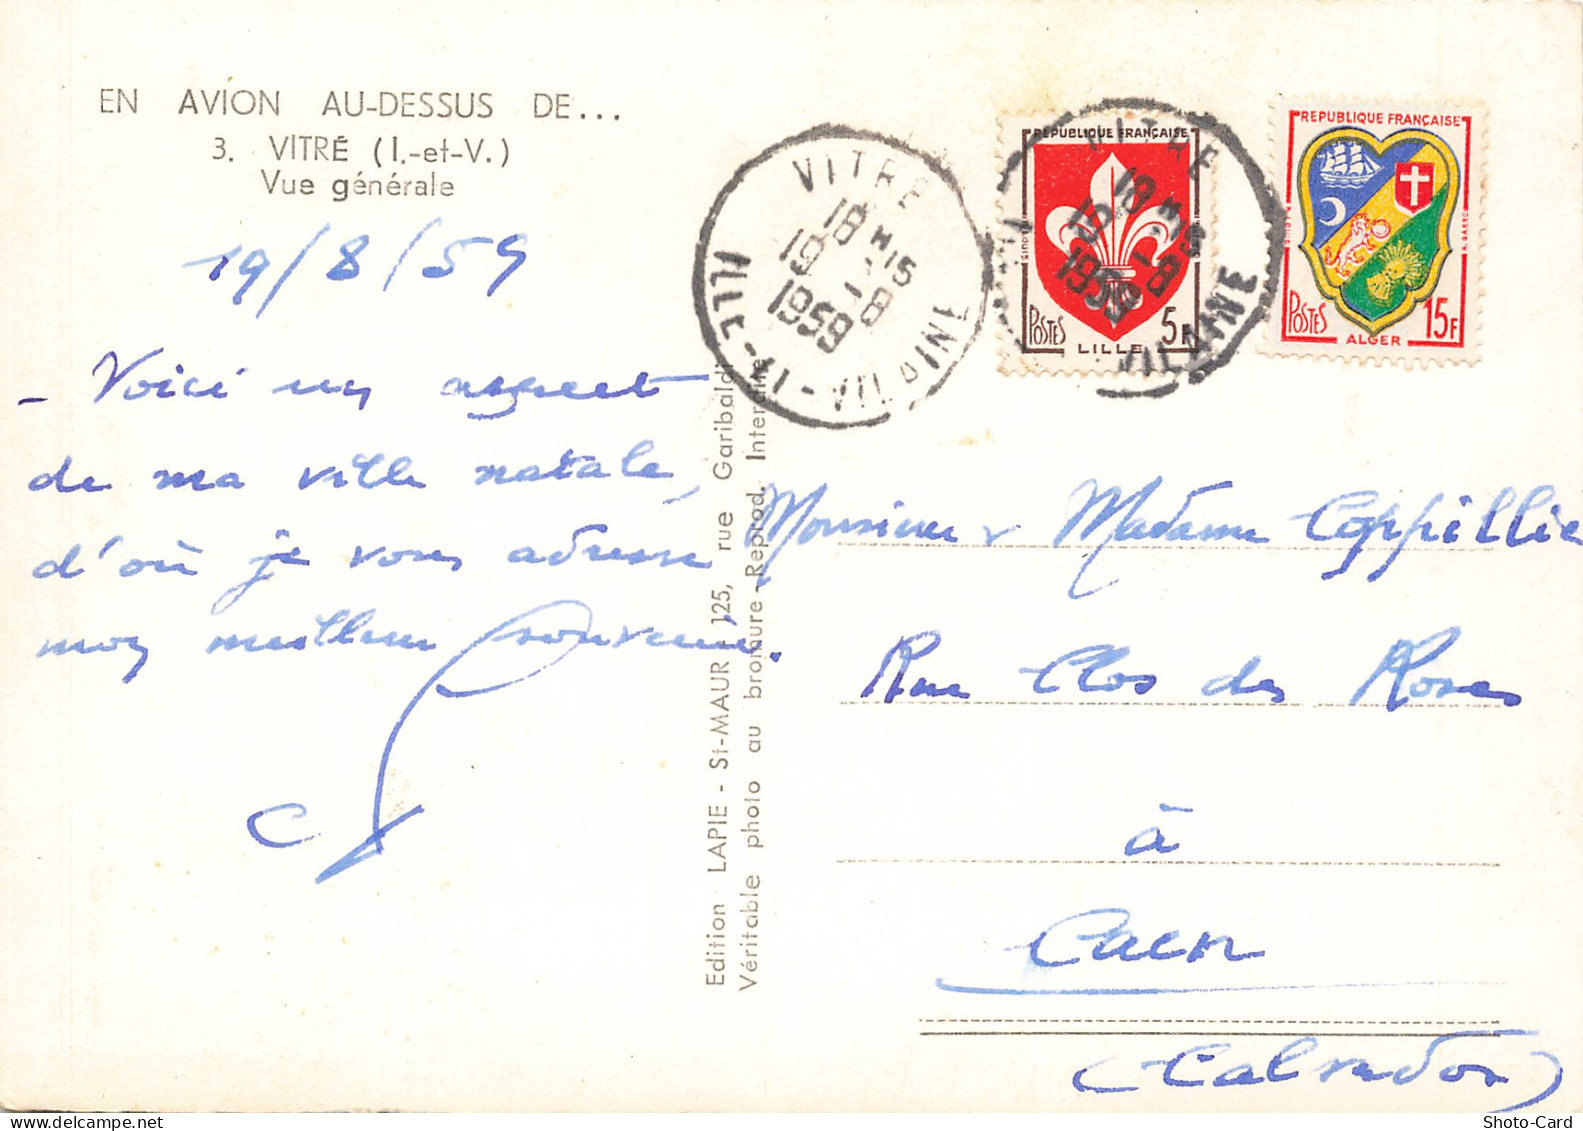 EN AVION AU-DESSUS DE...
3. VITRÉ (I.-et-V.)
Vue générale
19/8/59
- Voici un aspect
de ma ville natale,
d'où je vous adresse
mon meilleur souvenir.
Edition LAPIE - St-MAUR 125, rue Garibaldi
Véritable photo au bromure - Reprod. Interdite
VITRE
18 H15
19 - 8
1959
ILLE-ET-VILAINE
REPUBLIQUE FRANÇAISE
POSTES
5F
LILLE
VITRE
18 H15
19 - 8
1959
VILAINE
REPUBLIQUE FRANÇAISE
POSTES
15F
ALGER
Monsieur & Madame Coppillie
Rue Clos des Roses
à
Caen
(Calvados)
Photo-Card